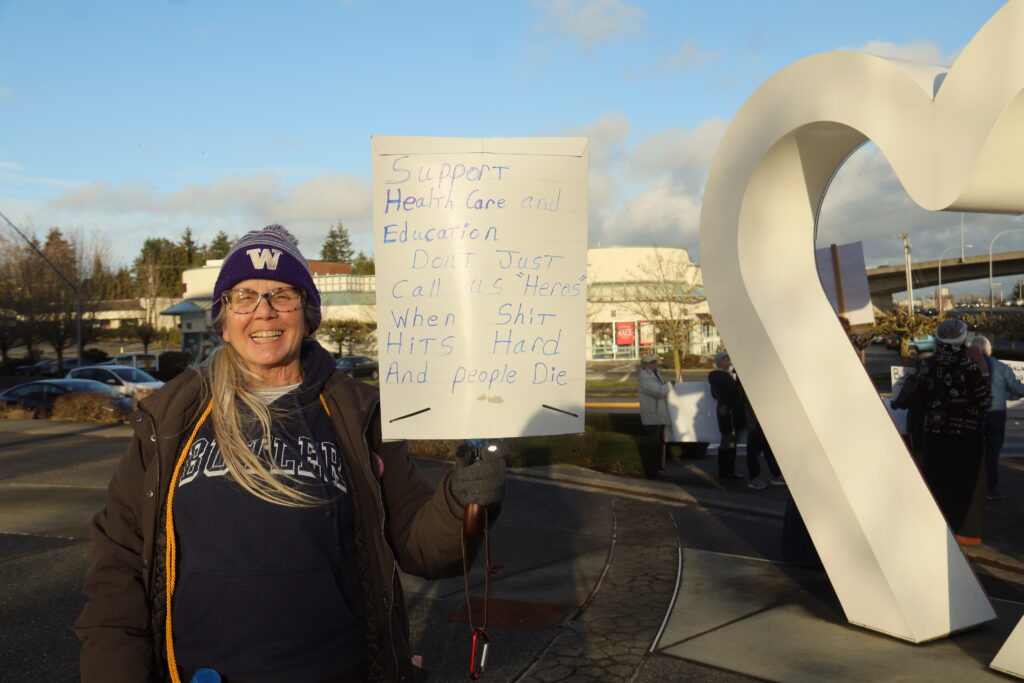 W
BUTLER
Support
Health Care and
Education
Don't Just
Call us "Heros"
When Shit
Hits Hard
And people Die